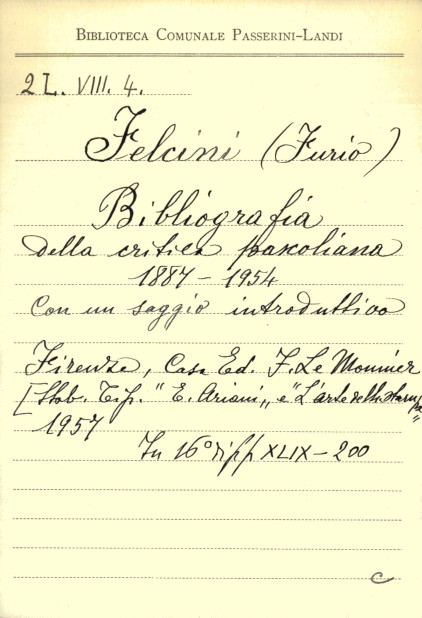 BIBLIOTECA COMUNALE PASSERINI-LANDI
2 L. VIII. 4.
Felcini (Furio)
Bibliografia
della critica pascoliana
1887 - 1954
Con un saggio introduttivo
Firenze, Casa Ed. F. Le Monnier
[Stab. Tip. "E. Ariani" e "L'arte della stampa"
1957
In 16° di pp XLIX - 200
C